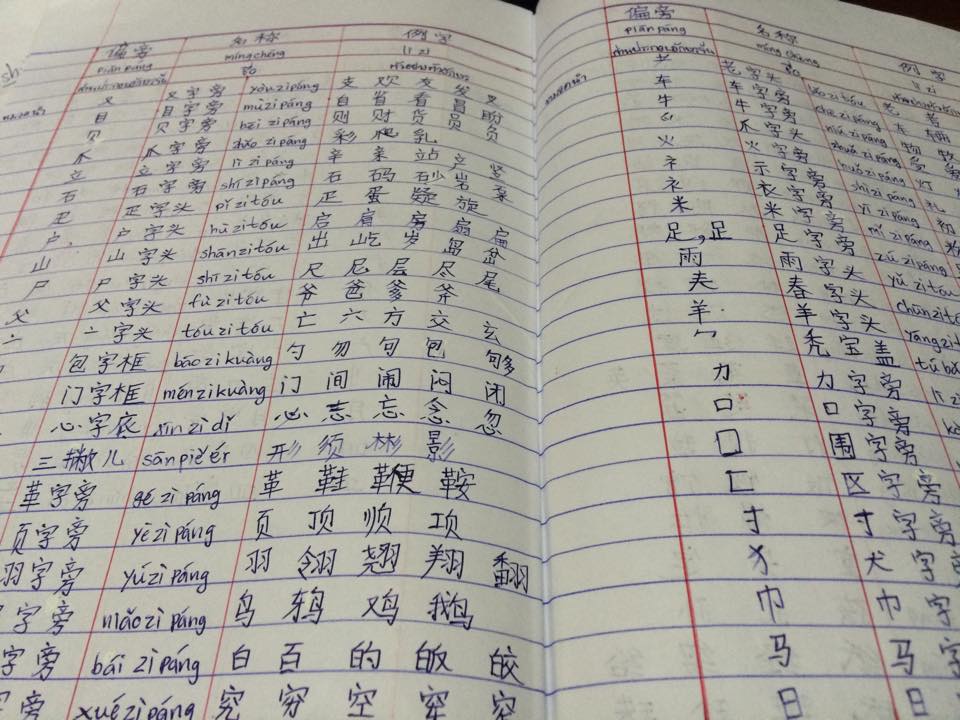 偏旁 名称 例字
piānpáng míngchēng lì zì
ชื่อ
又 又字旁 yòuzìpáng 支 欢 友 发 叉
目 目字旁 mùzìpáng 自 省 看 冒 盼
贝 贝字旁 bèi zìpáng 则 财 货 员 负
爪 爪字旁 zhǎo zìpáng 彩 爬 乳
立 立字旁 lì zìpáng 辛 亲 站 立 竖
石 石字旁 shízìpáng 石 码 砂 岩
疋 疋字头 pǐ zì tóu 疋 蛋 疑 旋
户 户字头 hù zì tóu 启 肩 房 扇 扁
山 山字头 shān zì tóu 出 屹 岁 岛 岔
尸 尸字头 shī zì tóu 尺 尼 层 尽 尾
父 父字头 fù zì tóu 爷 爸 爹 斧
亠 亠字头 tóu zì tóu 亡 六 方 交 玄
包字框 bāo zì kuàng 勺 勿 句 包 够
门字框 ménzìkuàng 门 间 闹 闷 闭
心字底 xīn zì dǐ 心 志 忘 念 忽
三撇儿 sānpiěér 形 须 彬 影
革字旁 gé zì páng 革 鞋 鞭 鞍
页字旁 yè zì páng 页 顶 顺 项
羽字旁 yǔzìpáng 羽 翎 翘 翔 翻
字旁 niǎo zì páng 鸟 鸦 鸡 鹅
字旁 bái zì páng 白 百 的 皈 皎
字旁 xué zì páng 究 穷 空 窄
偏旁 名称 例字
piānpáng míngchēng lì zì
ชื่อ
老字头
车 车字旁
牛 牛字旁 物 牧
爫 爪字头
火 火字旁 灯
礻 示字旁
衤 衣字旁 初
米 米字旁 mǐ zì páng
足,足 足字旁 zú zì páng
雨 雨字头
春字头
羊 羊字头
冖 秃宝盖
力 力字旁
口 口字旁
囗 围字旁
匚 区字旁
寸 寸字旁
犭 犬字旁
巾 巾字
马 马字
日 日